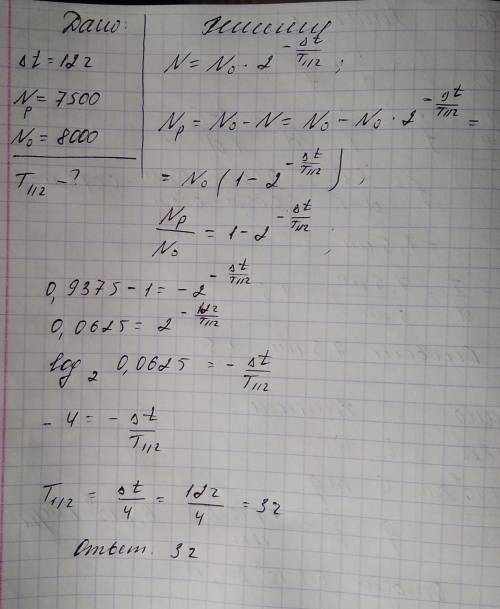 Дано:
Δt = 12 г
Nр = 7500
N₀ = 8000
T₁/₂ - ?
N = N₀ · 2^(-Δt/T₁/₂);
Nр = N₀ - N = N₀ - N₀ · 2^(-Δt/T₁/₂) =
= N₀ (1 - 2^(-Δt/T₁/₂));
Nр/N₀ = 1 - 2^(-Δt/T₁/₂);
0,9375 - 1 = -2^(-Δt/T₁/₂)
0,0625 = 2^(-12г/T₁/₂)
log₂ 0,0625 = - Δt/T₁/₂
- 4 = - Δt/T₁/₂
T₁/₂ = Δt/4 = 12г/4 = 3г
Ответ. 3г